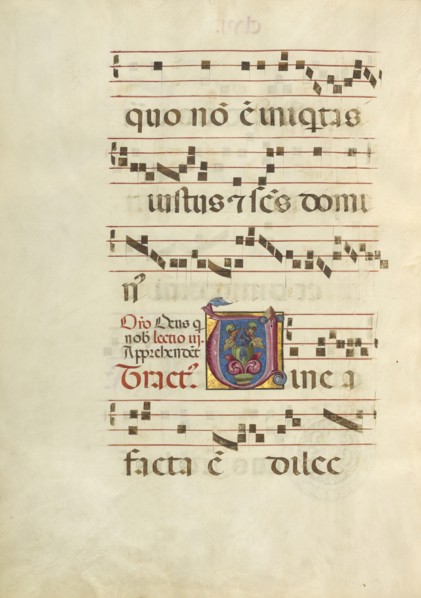 quo nō ē iniq̄tas
iustus ⁊ sc̄s domi
nꝰ
Or̄o Deus q̄
nob lectio iij.
Apprehendēt
Tractꝰ Uinea
facta ē dilec